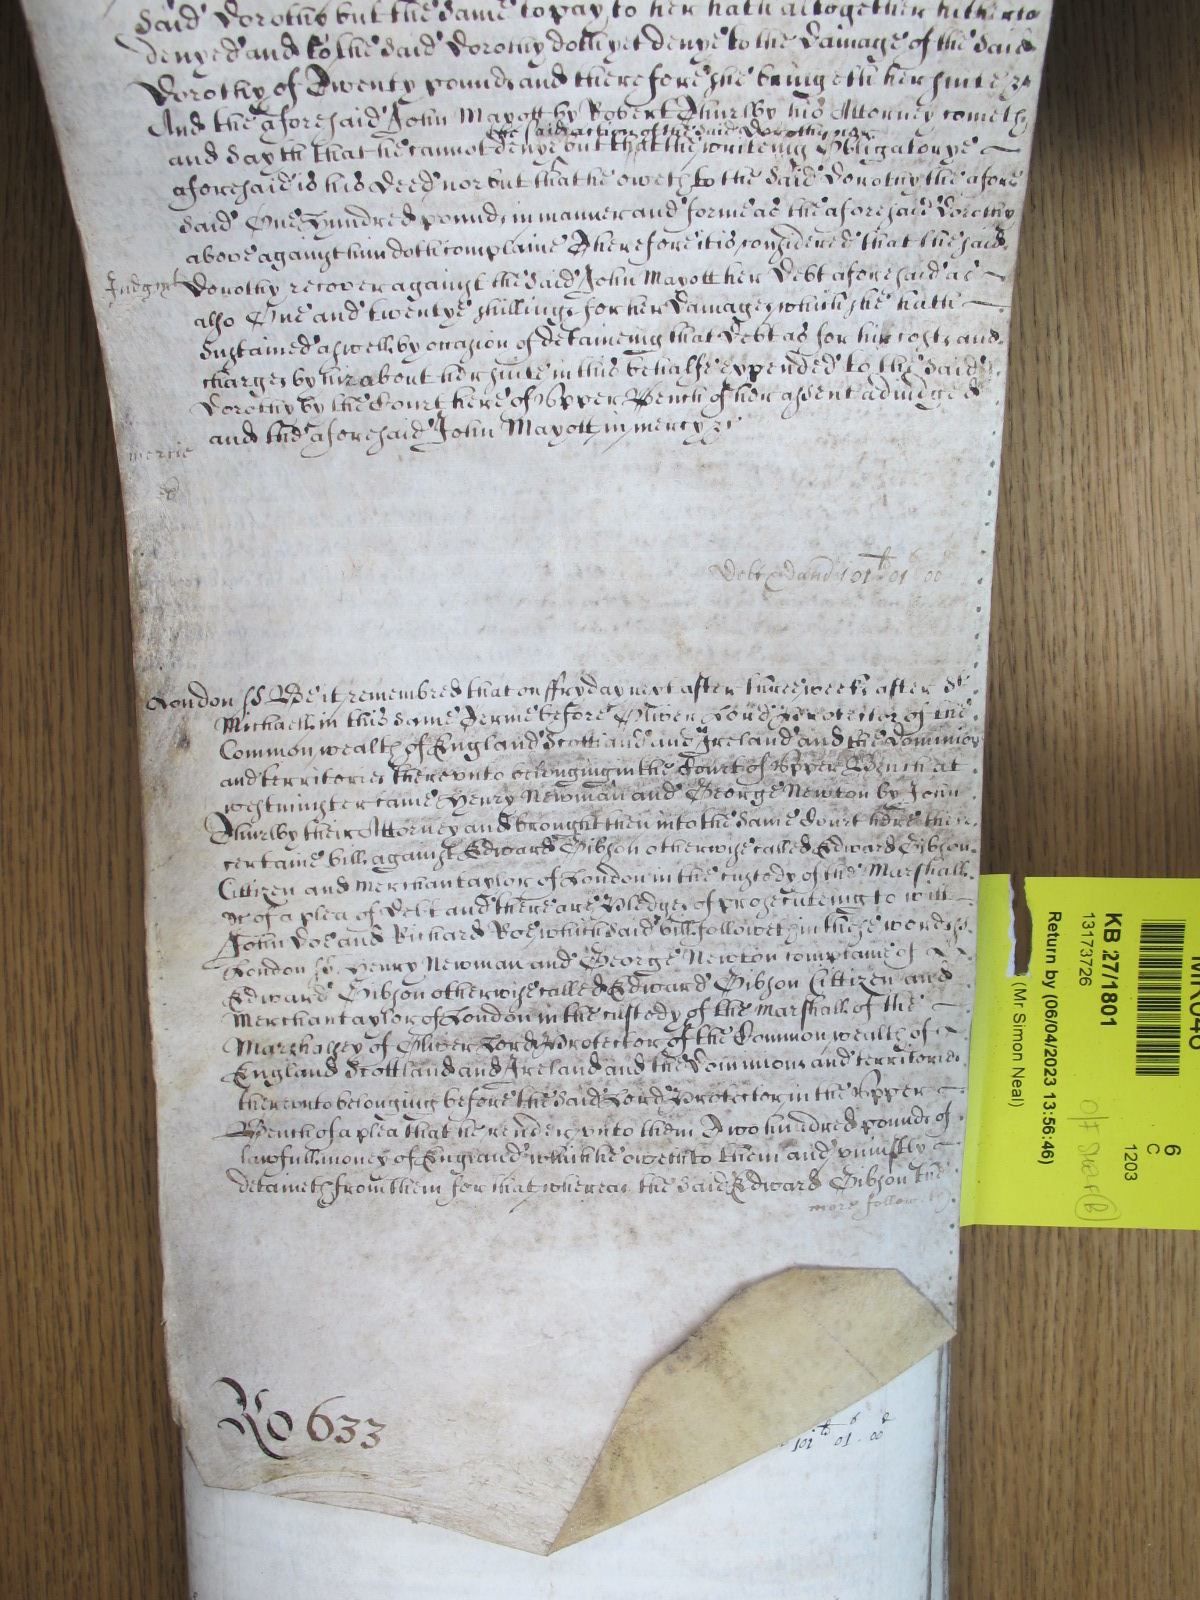 said Dorothy but the same to pay to her hath altogether hitherto
denyed and to the said Dorothy doth yet denye to the Damage of the said
Dorothy of Twenty pounds and therefore she bringeth her suite &c
And the aforesaid John Mayott by Robert Thurlby his Attorney cometh
the said action of the said Dorothy nor
and sayth that he cannot denye but that the writeing Obligatorye
aforesaid is his deed nor but that he oweth to the said Dorothy the afore
said One hundred pounds in manner and forme as the aforesaid Dorothy
above against him doth complaine Therefore it is considered that the said
Judgmt
Dorothy recover against the said John Mayott her Debt aforesaid as
also One and twentye shillings for her Damages which she hath
sustained aswell by occasion of detaineing that Debt as for hir costs and
charges by hir about her suite in this behalfe expended to the said
Dorothy by the Court here of Upper Bench of her assent adiudged
and the aforesaid John Mayott in mercy &c
mercie
Debt & dam 101 01 00
London ss Be it remembred that on ffryday next after three weekes after St
Michaell in this same Terme before Oliver Lord Protector of the
Common wealth of England Scotland and Ireland and the Dominions
and territories thereunto belonging in the Court of Upper Bench at
westminster came Henry Newman and George Newton by John
Thurlby their Attorney and brought then into the same Court here their
certaine bill against Edward Gibson otherwise called Edward Gibson
Cittizen and Merchantaylor of London in the custody of the Marshall
&c of a plea of debt and there are Pledges of prosecuteing to witt
John Doe and Richard Roe which said bill followeth in these words ss
London ss Henry Newman and George Newton complaine of
Edward Gibson otherwise called Edward Gibson Cittizen and
Merchantaylor of London in the custody of the Marshall of the
Marshalsey of Oliver Lord Protector of the Common wealth of
England Scottland and Ireland and the Dominions and territories
thereunto belonging before the said Lord Protector in the Upper
Bench of a plea that he render unto them Two hundred pounds of
lawfull money of England which he oweth to them and uniustly
detaineth from them for that whereas the said Edward Gibson the
more followeth
Ro 633
101 01 00
KB 27/1801
13173726
Return by (06/04/2023 13:56:46)
(Mr Simon Neal)
6
C
1203